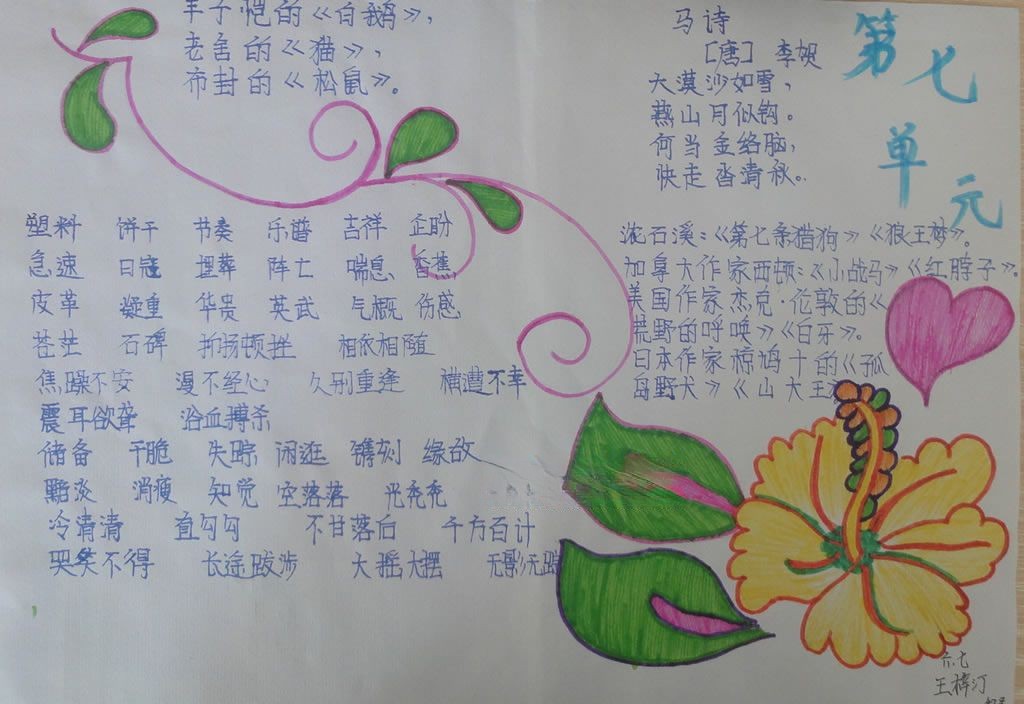 丰子恺的《白鹅》，
老舍的《猫》，
布封的《松鼠》。
马诗
[唐] 李贺
大漠沙如雪，
燕山月似钩。
何当金络脑，
快走沓清秋。
第七
单元
沈石溪：《第七条猎狗》《狼王梦》。
加拿大作家西顿：《小战马》《红脖子》。
美国作家杰克·伦敦的《
荒野的呼唤》《白牙》。
日本作家椋鸠十的《孤
岛野犬》《山大王
塑料 饼干 节奏 乐谱 吉祥 企盼
急速 日冠 埋葬 阵亡 喘息 香蕉
皮革 凝重 华贵 英武 气概 伤感
苍茫 石碑 抑扬顿挫 相依相随
焦躁不安 漫不经心 久别重逢 横遭不幸
震耳欲聋 浴血搏杀
储备 干脆 失踪 闲逛 镌刻 缘故
黯淡 消瘦 知觉 空落落 光秃秃
冷清清 直勾勾 不甘落后 千方百计
哭笑不得 长途跋涉 大摇大摆 无影无踪
六.七
王梓汀